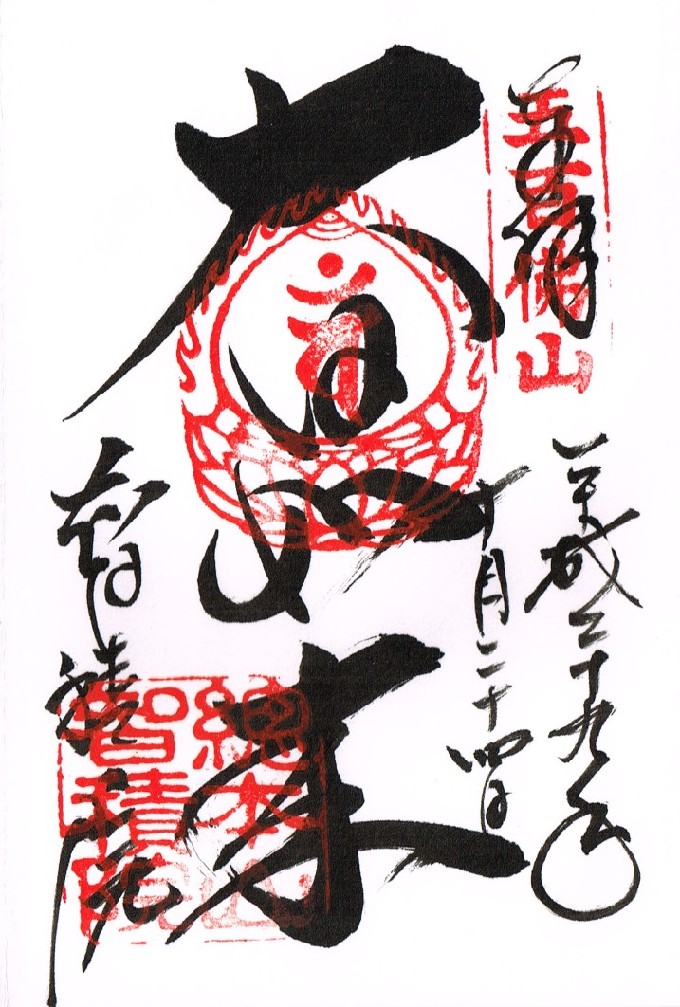 奉拝
五百佛山
平成二十九年
十月二十四日
大日如来
智積院
總本山
智積院